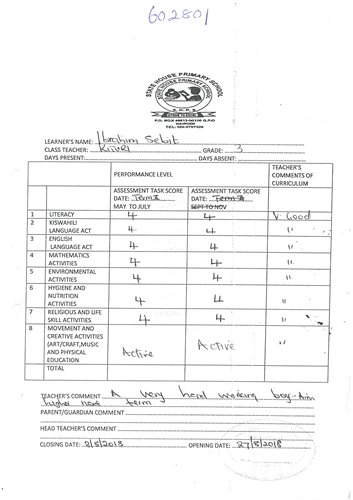 602801
STATE HOUSE PRIMARY SCHOOL
STATE HOUSE PRIMARY SCHOOL
NAIROBI
LEARNER'S NAME: Ibrahim
CLASS TEACHER: GRADE: 3
DAYS PRESENT: DAYS ABSENT:
PERFORMANCE LEVEL TEACHER'S COMMENTS OF CURRICULUM
ASSESSMENT TASK SCORE ASSESSMENT TASK SCORE
DATE: Term II DATE: Term
MAY TO JULY SEPT TO NOV
1 LITERACY 4 4 V. Good
2 KISWAHILI LANGUAGE ACT 4 4 "
3 ENGLISH LANGUAGE ACT 4 4 "
4 MATHEMATICS ACTIVITIES 4 4 "
5 ENVIRONMENTAL ACTIVITIES 4 4 "
6 HYGIENE AND NUTRITION ACTIVITIES 4 4 "
7 RELIGIOUS AND LIFE SKILL ACTIVITIES 4 4 "
8 MOVEMENT AND CREATIVE ACTIVITIES (ART/CRAFT,MUSIC AND PHYSICAL EDUCATION Active Active "
TOTAL
TEACHER'S COMMENT A very hard working boy. Aim
higher next term
PARENT/GUARDIAN COMMENT
HEAD TEACHER'S COMMENT
CLOSING DATE: OPENING DATE: 27/8/2018